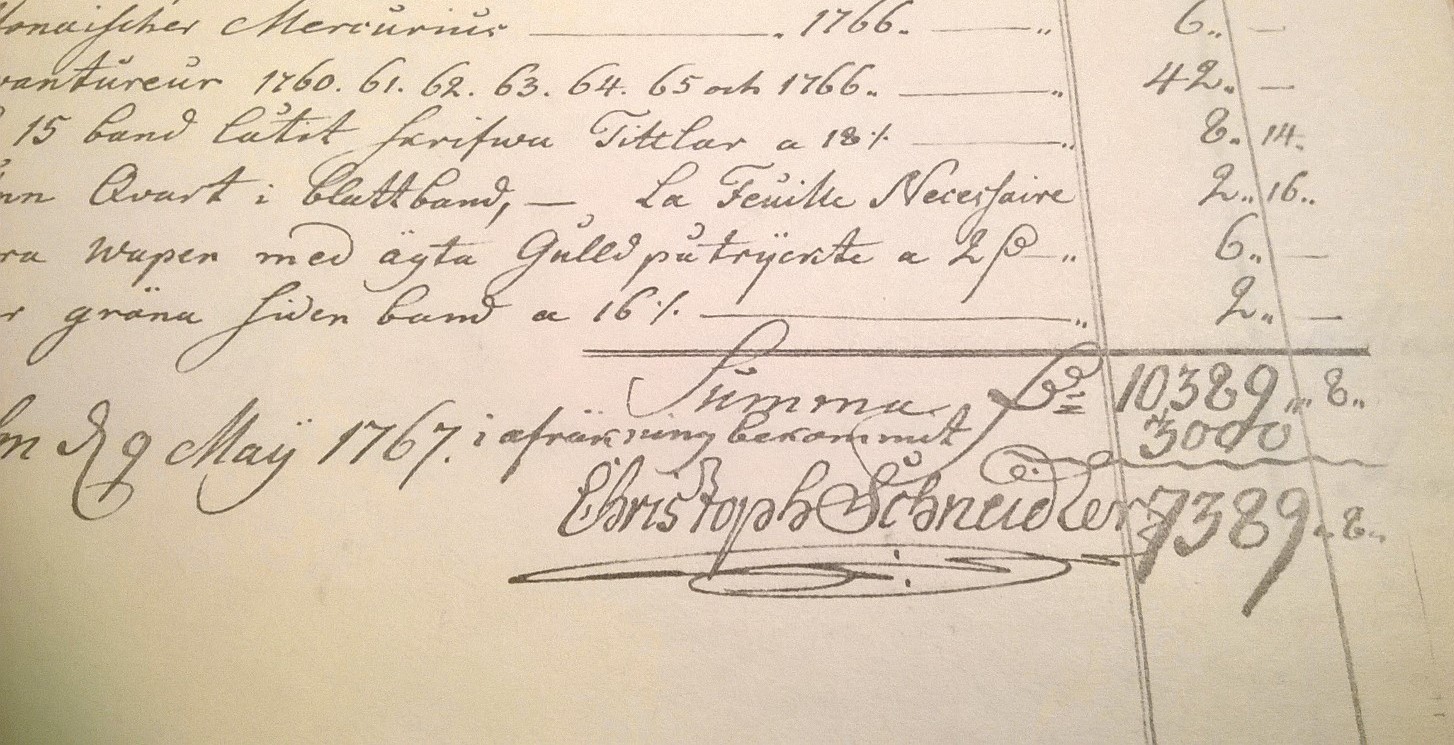 onaischer Mercurius ——— 1766. — „ 6„ —
vantureur 1760. 61. 62. 63. 64. 65 och 1766„ — „ 42„ —
15 band låtit skrifwa Tittlar a 18 ./. — „ 8„ 14„
nn Qvart i blattband, — La Feuille Necessaire 2„ 16„
ra wapen med ägta Gulld påtrÿckte a 2 — „ 6„ —
r gröna siden band a 16 ./. — „ 2„ —
Summa 10389„ 8„
m d 9 Maÿ 1767. i afräkning bekommit 3000
Christoph Schneidler 7389„ 8„